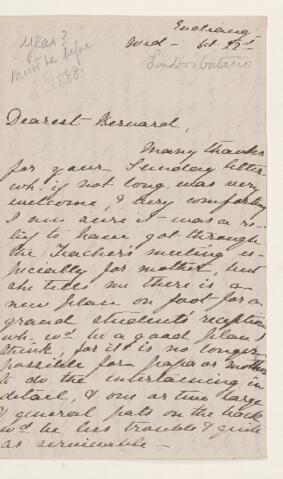 year?
must be before
1888.
Wed - Oct. 23d
London Ontario
Dearest Bernard,
Many thanks
for your Sunday letter
wh. if not long was very
welcome, & very comforting
I am sure it was a re-
lief to have got through
the Teacher's meeting es-
pecially for mother, but
she tells me there is a
new plan on foot for a
grand students' reception
wh. wd. be a good plan I
think, for it is no longer
possible for papa or mother
to do the entertaining in
detail, & one or two large
& general pats on the back
wd. be less trouble & quite
as serviceable -